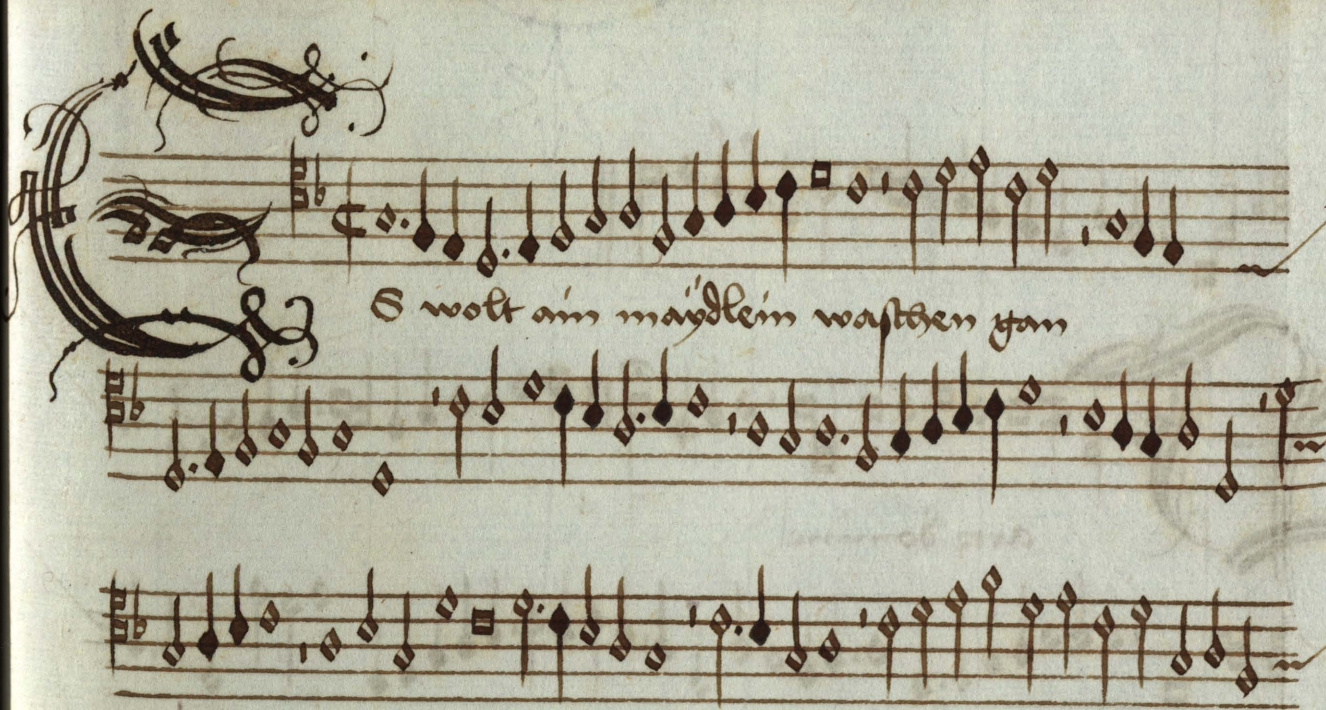 ES wolt ain maÿdlein waschen gan